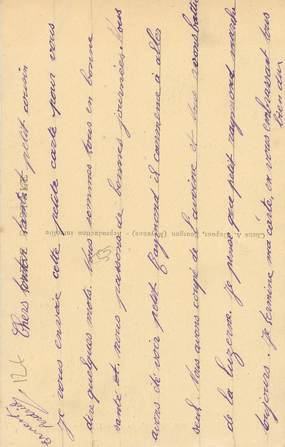 Chers tonton tante et petit cousin
je vous envoie cette petite carte pour vous
dire quelques mots. Nous sommes tous en bonne
santé et nous passons de bonnes journées. Nous
avons été voir petit Raymond il commence à aller
seul. Nous avons coupé de l'avoine et
de la luzerne. je pense que petit Raymond marche
toujours. je termine ma carte, en vous embrassant tous
bien dur
Cliché A. Reproduction interdite
53